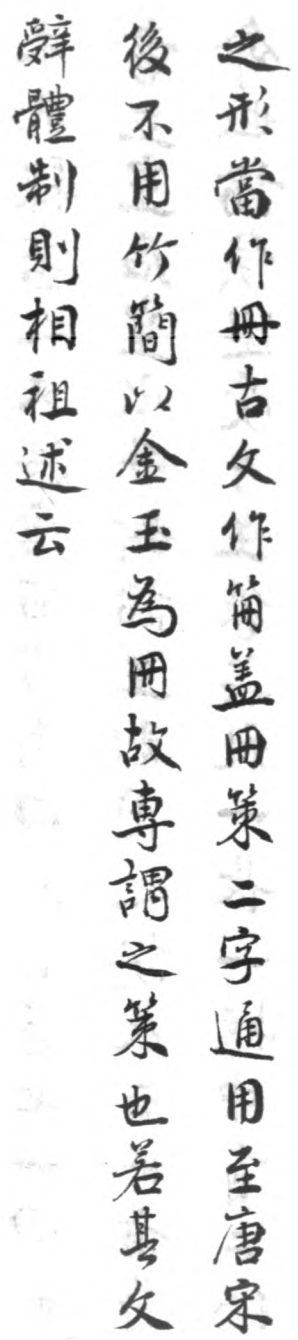 之形當作冊古文作笧盖冊策二字通用至唐宋
後不用竹簡以金玉為冊故専謂之策也若其文
辭體制則相祖述云